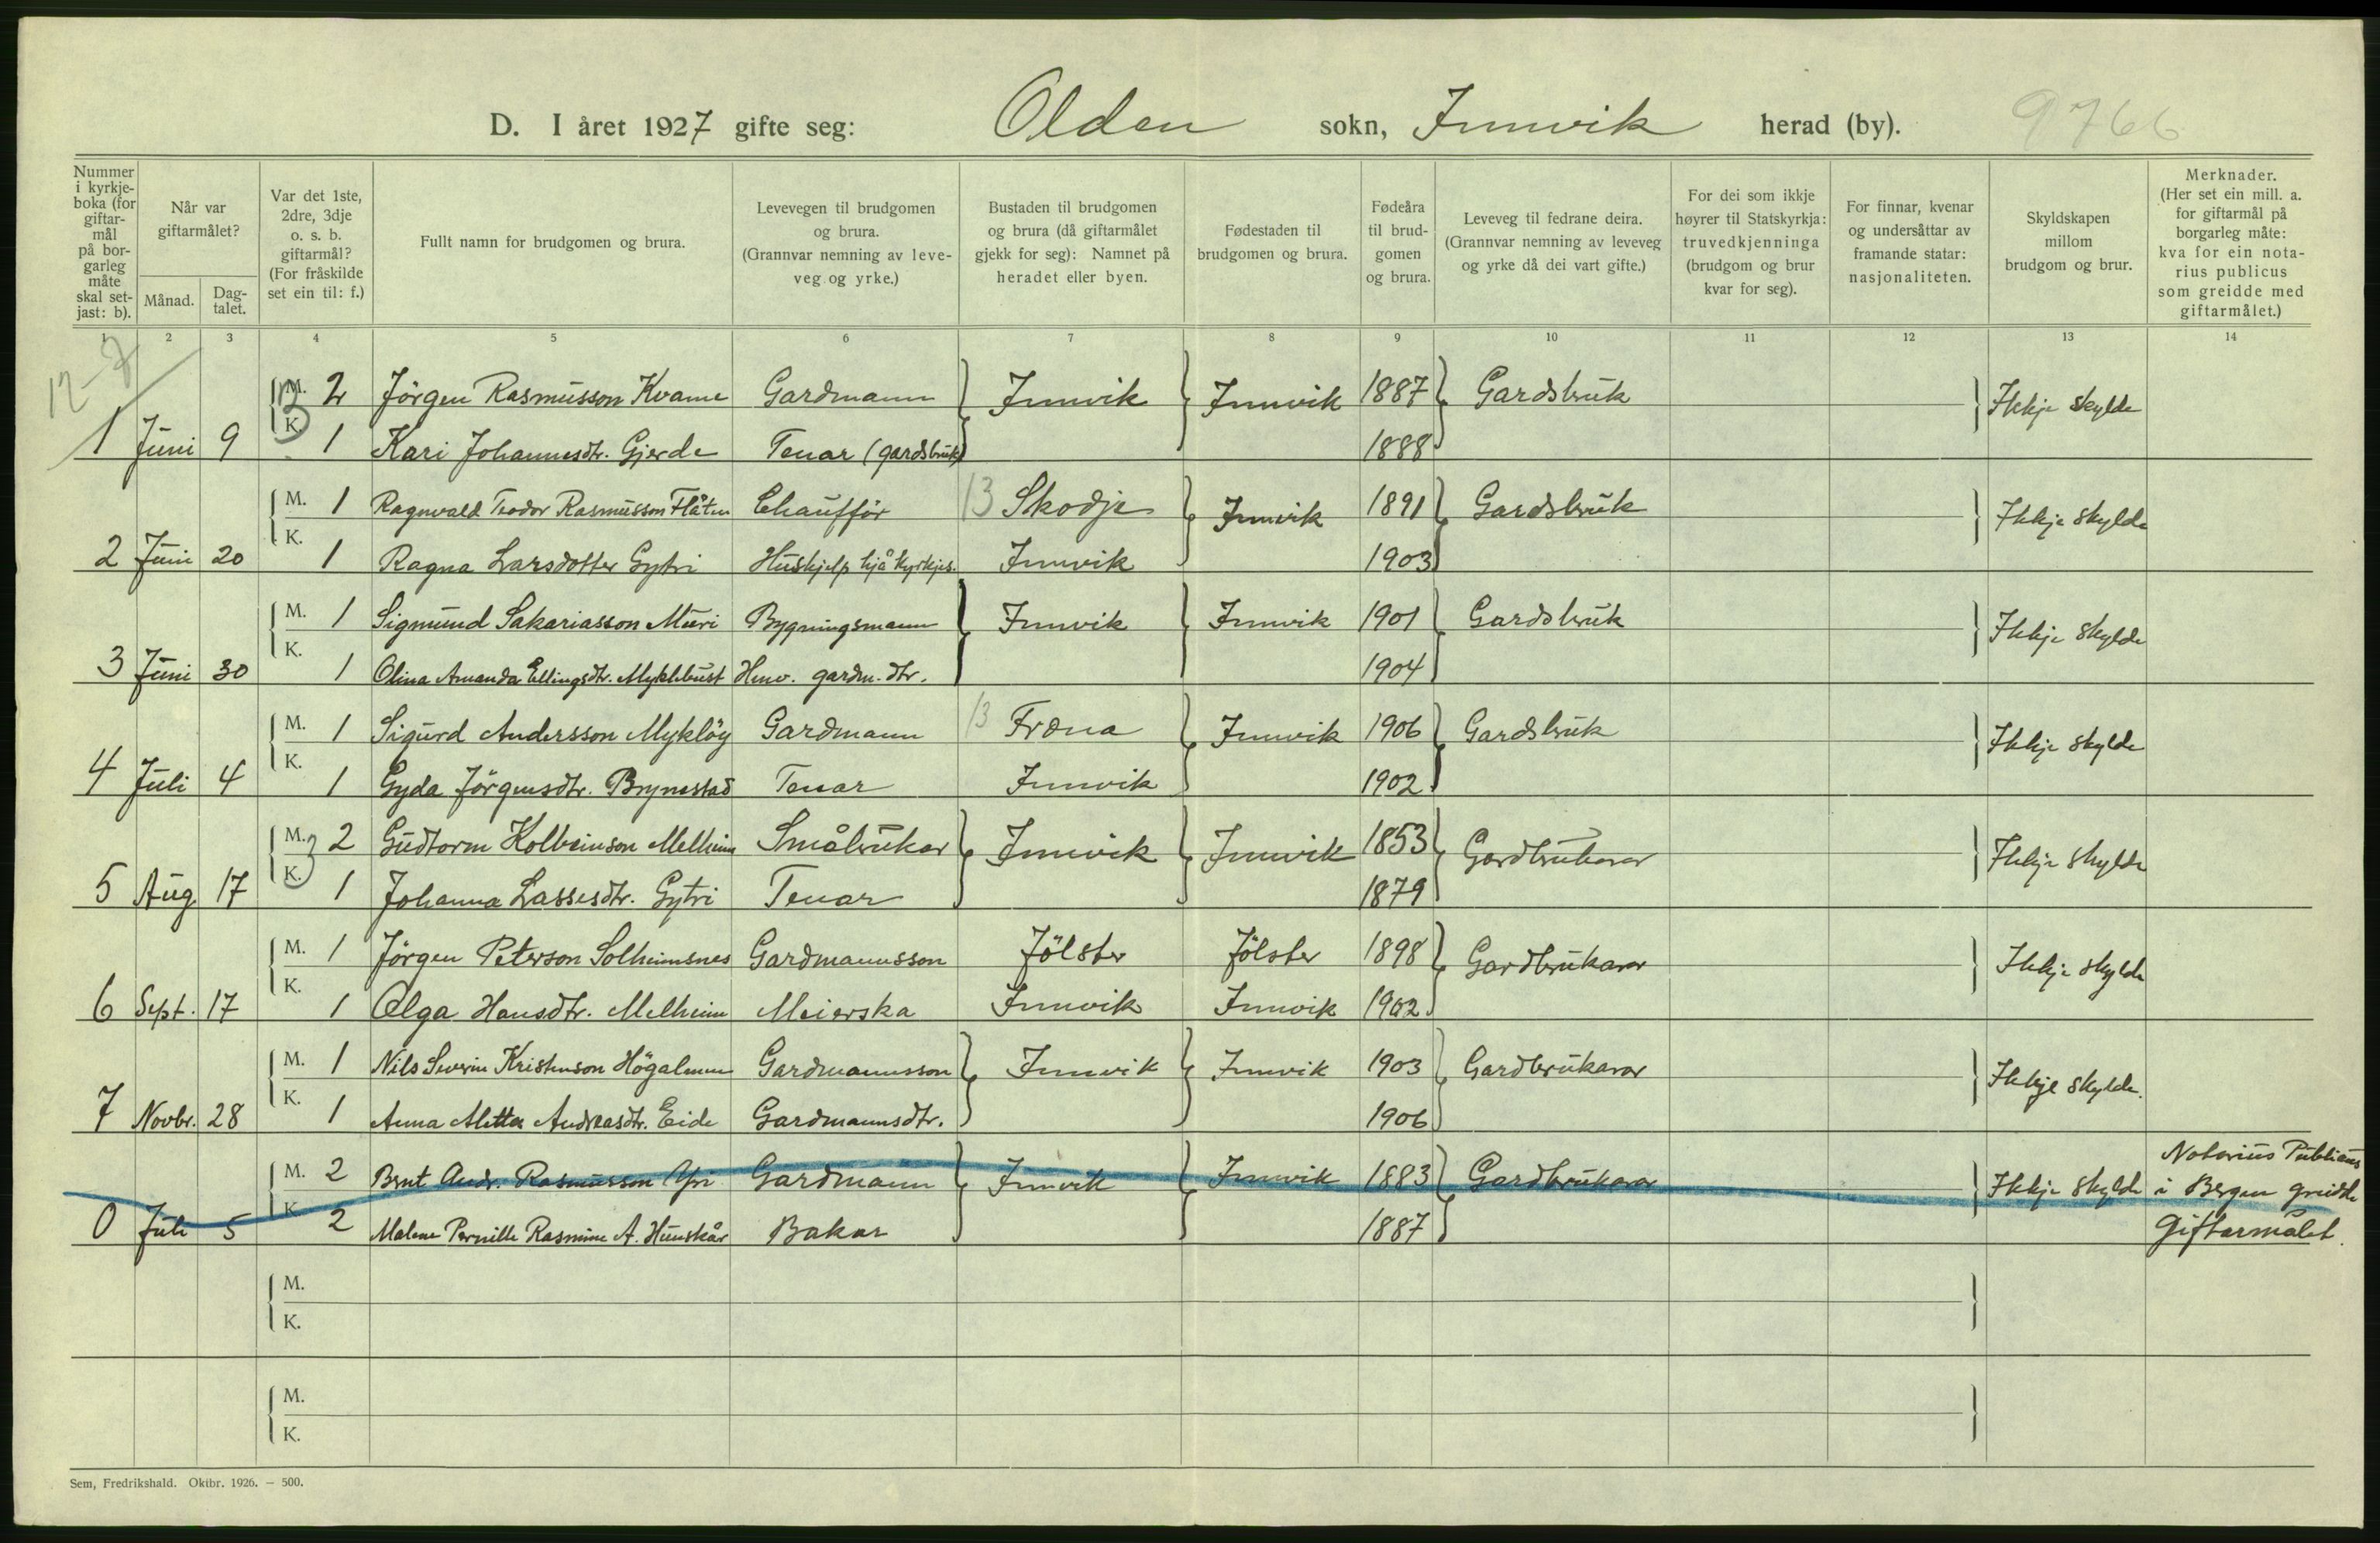 D. I året 1927 gifte seg: Olden sokn, Innvik herad (by). 9766
Nummer i kyrkje-boka (for giftar-mål på bor-garleg måte skal set-jast: b).
Når var giftarmålet?
Månad.
Dag-talet.
Var det 1ste, 2dre, 3dje o. s. b. giftarmål? (For fråskilde set ein til: f.)
Fullt namn for brudgomen og brura.
Levevegen til brudgomen og brura. (Grannvar nemning av leve-veg og yrke.)
Bustaden til brudgomen og brura (då giftarmålet gjekk for seg): Namnet på heradet eller byen.
Fødestaden til brudgomen og brura.
Fødeåra til brud-gomen og brura.
Leveveg til fedrane deira. (Grannvar nemning av leveveg og yrke då dei vart gifte.)
For dei som ikkje høyrer til Statskyrkja: truvedkjenninga (brudgom og brur kvar for seg).
For finnar, kvenar og undersåttar av framande statar: nasjonaliteten.
Skyldskapen millom brudgom og brur.
Merknader. (Her set ein mill. a. for giftarmål på borgarleg måte: kva for ein nota-rius publicus som greidde med giftarmålet.)
1 2 3 4 5 6 7 8 9 10 11 12 13 14
12-7
M. 2 Jörgen Rasmusson Kvame Gardmann Innvik Innvik 1887 Gardsbruk Ikkje skylde
1 Juni 9 K. 1 Kari Johannesdtr. Gjerde Tenar (gardsbruk) 1888
M. 1 Ragnvald Teodor Rasmusson Flåten Chaufför 13 Skodje Innvik 1891 Gardsbruk Ikkje skylde
2 Juni 20 K. 1 Ragna Larsdotter Gytri Huskjelp hjå kyrkjes. Innvik 1903
M. 1 Sigmund Sakariasson Muri Bygningsmann Innvik Innvik 1901 Gardsbruk Ikkje skylde
3 Juni 30 K. 1 Olina Amanda Ellingsdtr. Myklebust Hmv. gardm. dtr. 1904
M. 1 Sigurd Andersson Myklöy Gardmann 13 Fræna Innvik 1906 Gardsbruk Ikkje skylde
4 Juli 4 K. 1 Gyda Jörgensdtr. Brynestad Tenar Innvik 1902
M. 2 Gudtorm Kolbeinson Melheim Småbrukar Innvik Innvik 1853 Gardbrukarar Ikkje skylde
5 Aug 17 K. 1 Johanna Lassesdtr. Gytri Tenar 1879
M. 1 Jörgen Peterson Solheimsnes Gardmannsson Jölster Jölster 1898 Gardbrukarar Ikkje skylde
6 Sept. 17 K. 1 Olga Hansdtr. Melheim Meierska Innvik Innvik 1902
M. 1 Nils Severin Kristenson Högalmen Gardmannsson Innvik Innvik 1903 Gardbrukarar Ikkje skylde.
7 Novbr. 28 K. 1 Anna Metta Andreasdtr. Eide Gardmannsdtr. 1906
M. 2 Bernt Andr. Rasmusson Yri Gardmann Innvik Innvik 1883 Gardbrukarar Ikkje skylde Notarius Publicus i Bergen greidde
0 Juli 5 K. 2 Malene Pernille Rasmine A. Hunskår Bakar 1887 Giftarmålet.
M.
K.
M.
K.
Sem, Fredrikshald. Oktbr. 1926. — 500.